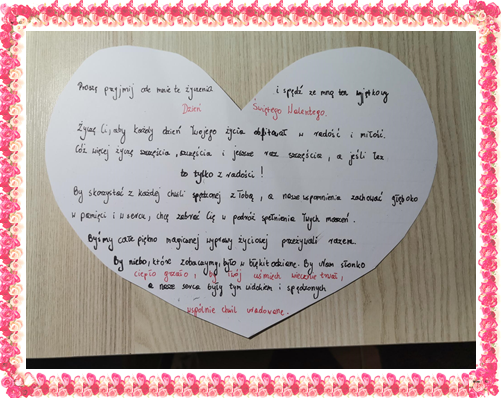 Proszę przyjmij ode mnie te życzenia i spędź ze mną ten wyjątkowy
Dzień Świętego Walentego.
Życzę Ci, aby każdy dzień Twojego życia obfitował w radość i miłość.
Cóż więcej życzę szczęścia, szczęścia i jeszcze raz szczęścia, a jeśli łez
to tylko z radości!
By skorzystać z każdej chwili spędzonej z Tobą, a nasze wspomnienia zachować głęboko
w pamięci i w sercu, chcę zabrać Cię w podróż spełnienia Twych marzeń.
Byśmy całe piękno magicznej wyprawy życiowej przeżywali razem.
By niebo, które zobaczymy, było w błękit odziane. By Nam słonko
ciepło grzało, by Twój uśmiech wiecznie trwał,
a nasze serca były tym widokiem i spędzonych
wspólnie chwil uradowane.